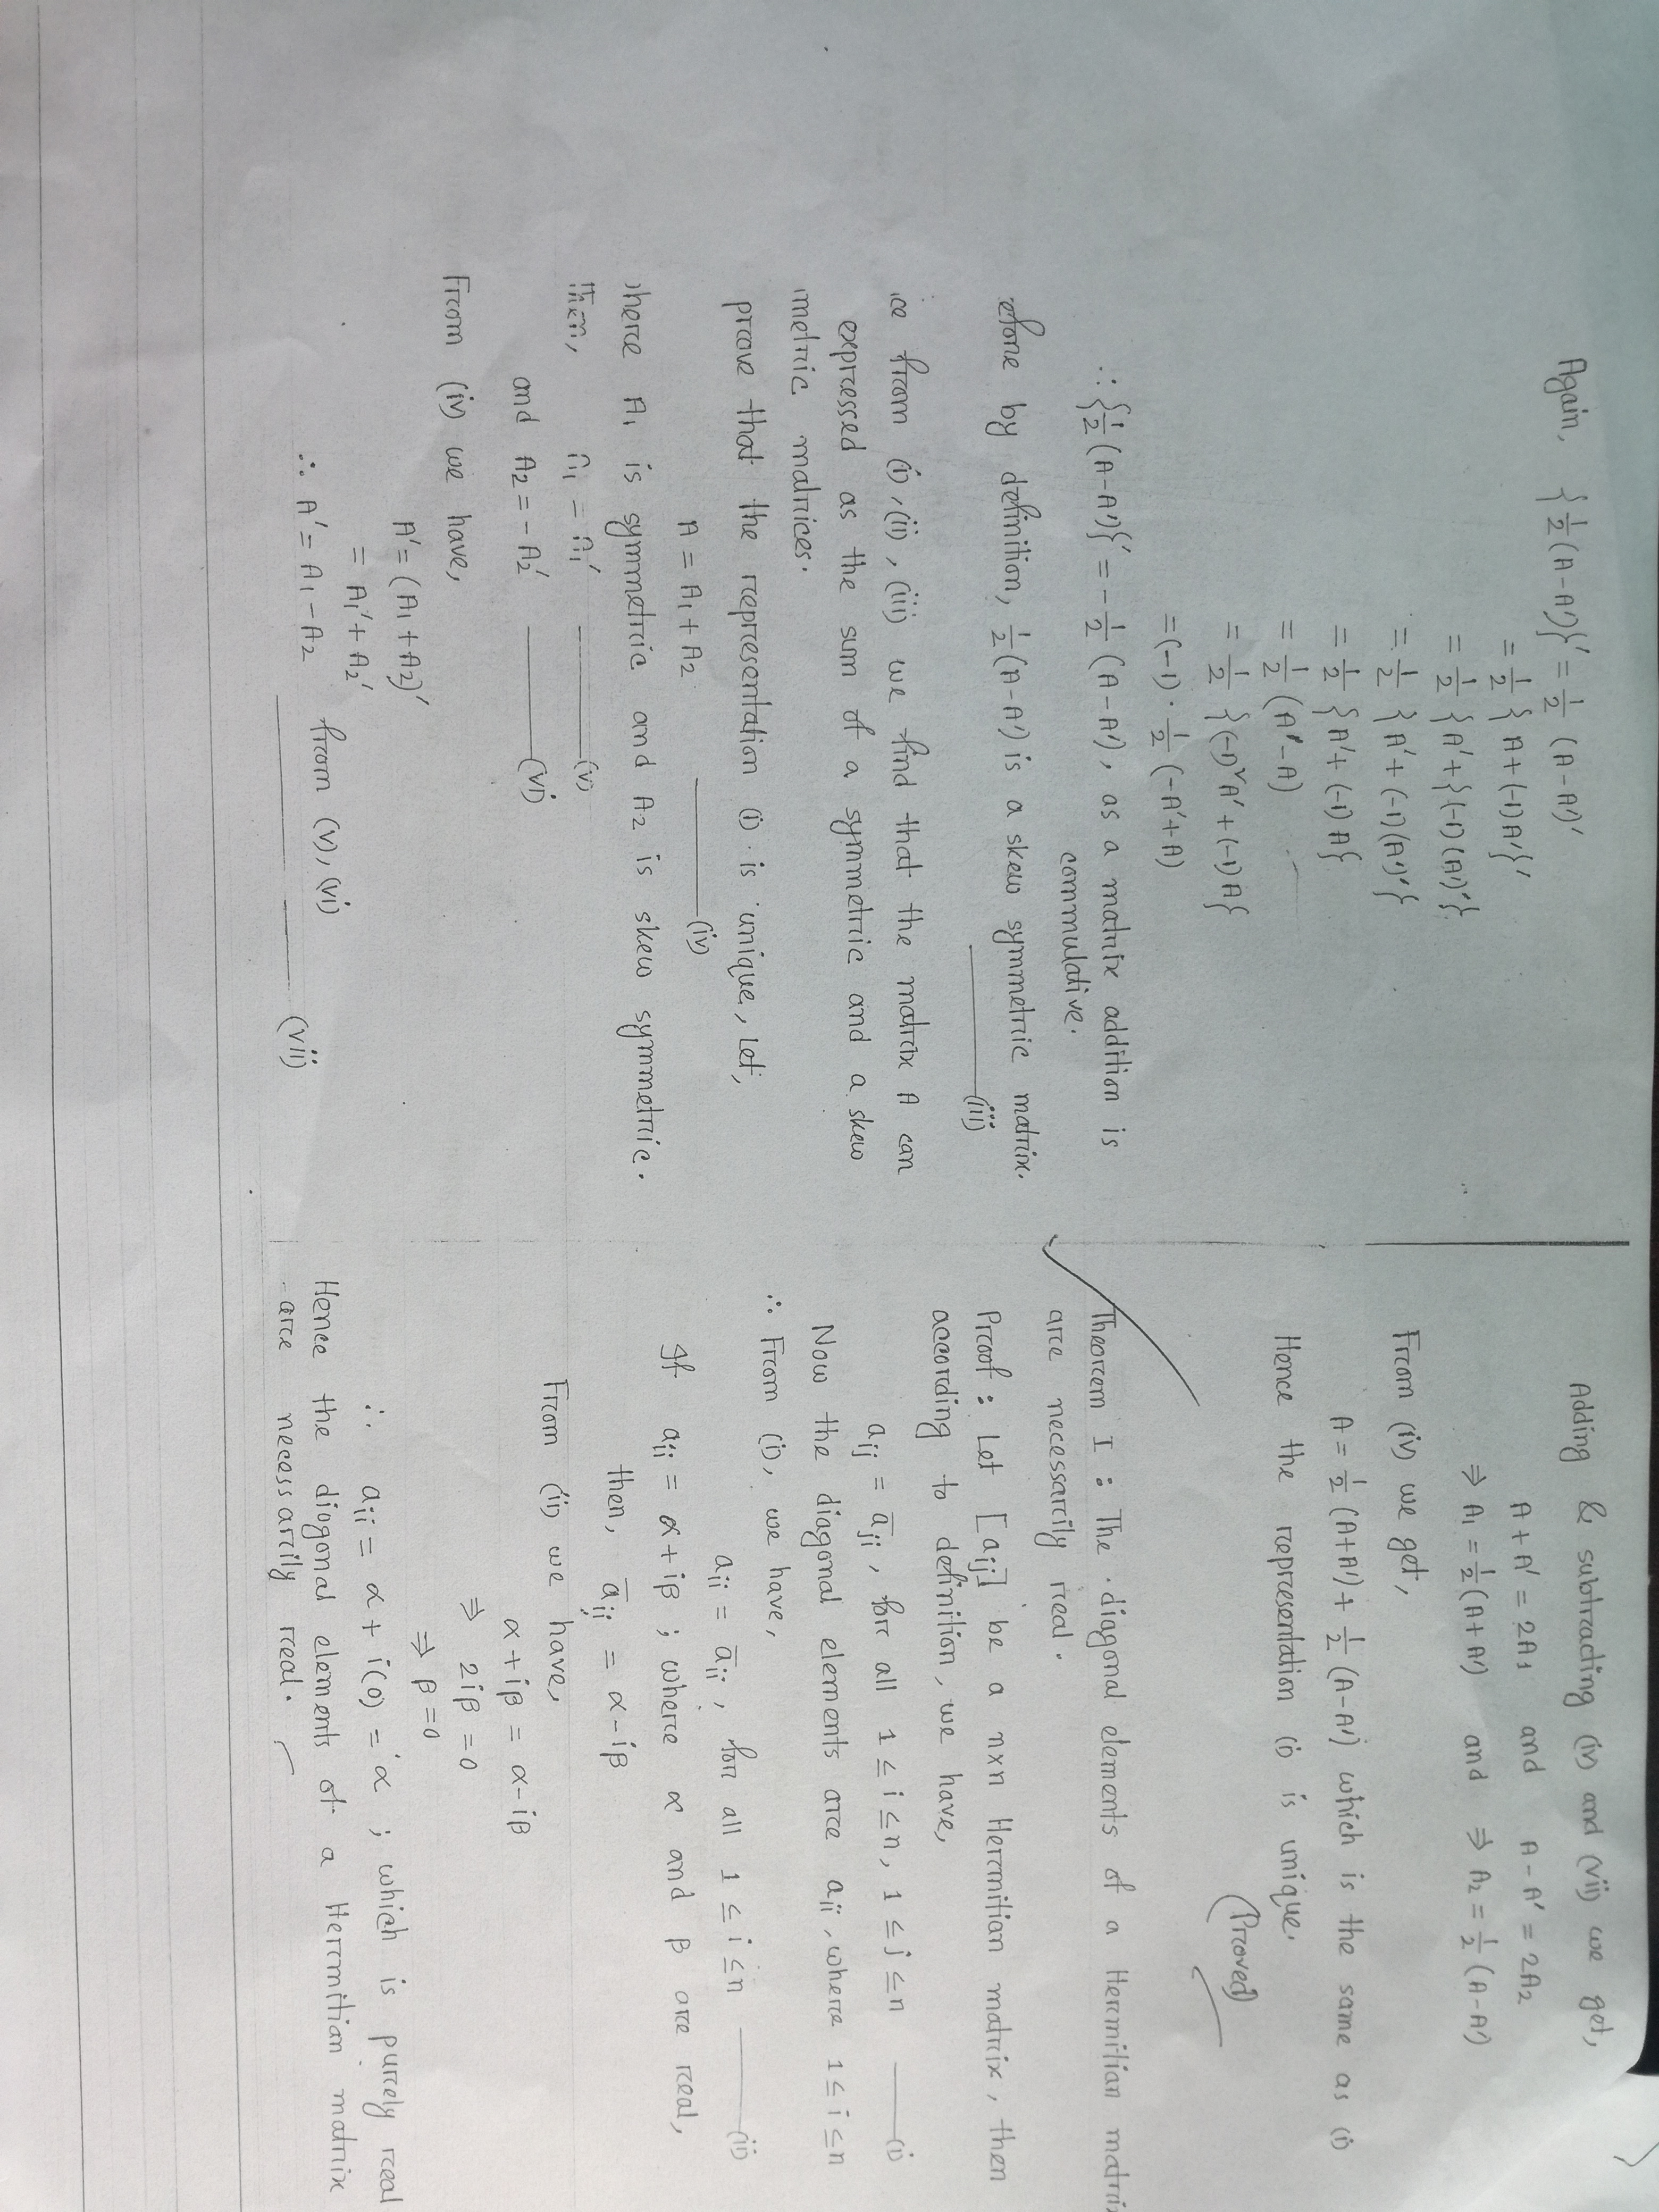 Again, {½(A-A')}' = ½ (A-A')'
= ½ { A+(-1)A'}'
= ½ {A'+{(-1)(A')'}
= ½ {A'+(-1)(A')'}
= ½ {A'+(-1)A}
= ½ (A'-A)
= ½ {(-1)²A'+(-1)A}
=(-1)·½ (-A'+A)
∴ {½(A-A')}' = -½ (A-A'), as a matrix addition is
commulative.
efore by definition, ½(A-A') is a skew symmetric matrix.
(iii)
ce from (i), (ii), (iii) we find that the matrix A can
expressed as the sum of a symmetric and a skew
metric matrices.
prove that the representation (i) is unique, Let,
A = A₁+A₂ (iv)
here A₁ is symmetric and A₂ is skew symmetric.
Then, A₁ = A₁' (v)
and A₂ = -A₂' (vi)
From (iv) we have,
A' = (A₁+A₂)'
= A₁'+A₂'
∴ A' = A₁-A₂ from (v), (vi)
(vii)
Adding & subtracting (iv) and (vii) we get,
A+A' = 2A₁ and A-A' = 2A₂
⇒ A₁ = ½(A+A') and ⇒ A₂ = ½ (A-A')
From (iv) we get,
A = ½ (A+A')+ ½ (A-A') which is the same as (i)
Hence the representation (i) is unique.
(Proved)
Theorem I : The diagonal elements of a Hermitian matrix
are necessarily real.
Proof : Let [aij] be a n×n Hermitian matrix, then
according to definition, we have,
aij = āji, for all 1 ≤ i ≤ n, 1 ≤ j ≤ n (i)
Now the diagonal elements are aii, where 1 ≤ i ≤ n
∴ From (i), we have,
aii = āii, for all 1 ≤ i ≤ n (ii)
If aii = α+iβ ; where α and β are real,
then, āii = α-iβ
From (ii) we have,
α+iβ = α-iβ
⇒ 2iβ = 0
⇒ β = 0
∴ aii = α + i(0) = α ; which is purely real
Hence the diogonal elements of a Hermitian matrix
are necessarily real.